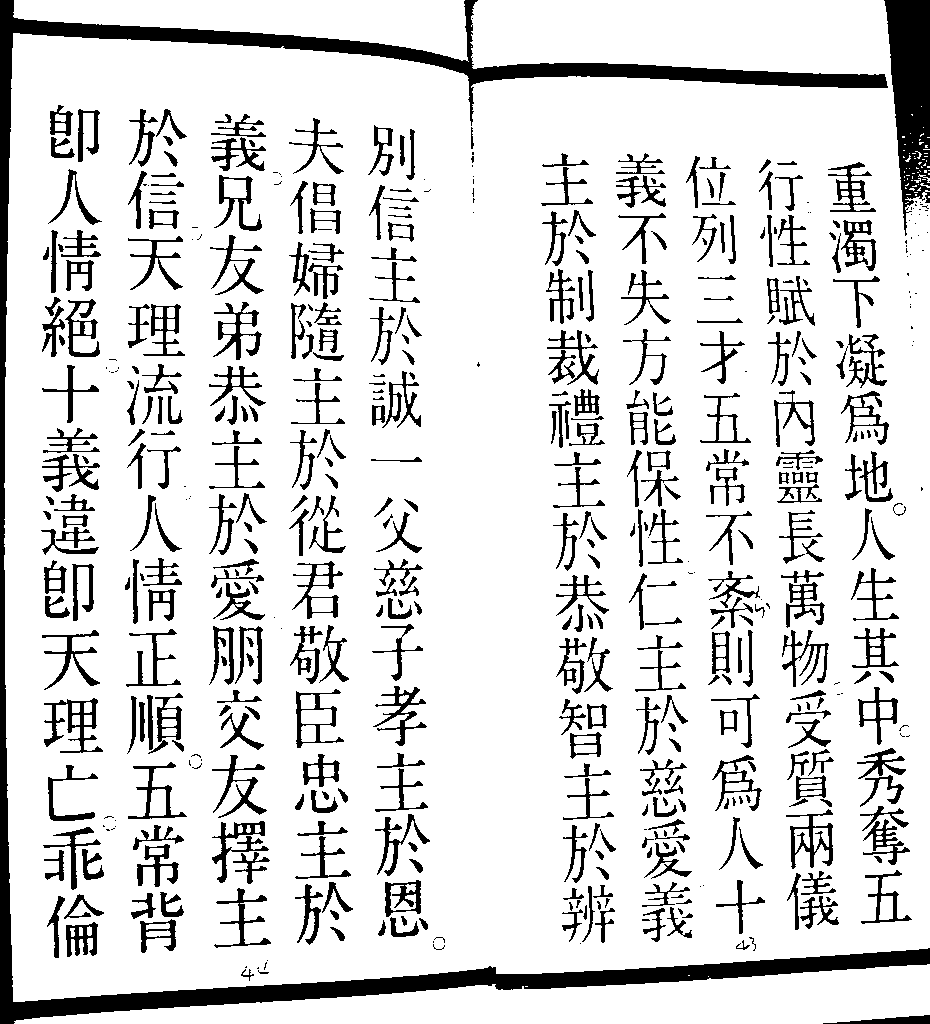 重濁下凝爲地。人生其中。秀奪五
行性賦於內靈長萬物受質兩儀
位列三才五常不紊則可爲人十
義不失方能保性仁主於慈愛義
主於制裁禮主於恭敬智主於辨
43
別信主於誠一父慈子孝主於恩。
夫倡婦隨主於從君敬臣忠主於
義。兄友弟恭主於愛朋交友擇主
於信。天理流行人情正順。五常背
卽人情絕。十義違卽天理亡。乖倫
44